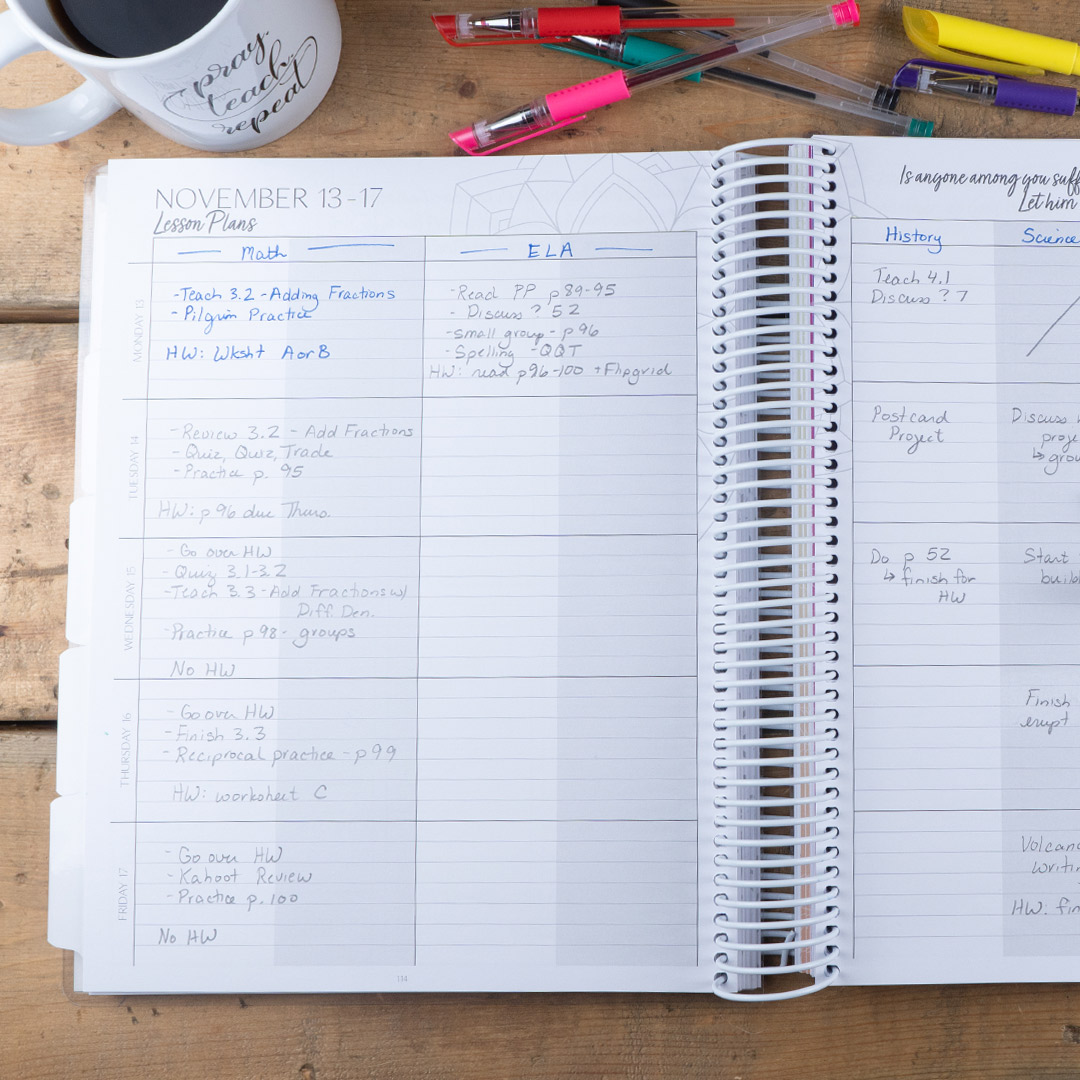 pray.
teach.
repeat
NOVEMBER 13-17
Lesson Plans
Math
ELA
MONDAY 13
- Teach 3.2 - Adding Fractions
- Pilgrim Practice
HW: Wksht A or B
- Read PP p 89-95
- Discuss ? 52
- Small group - p 96
- Spelling - QQT
HW: read p96-100 + Flipgrid
TUESDAY 14
- Review 3.2 - Add Fractions
- Quiz, Quiz, Trade
- Practice p. 95
HW: p 96 due Thurs.
WEDNESDAY 15
- Go over HW
- Quiz 3.1-3.2
- Teach 3.3 - Add Fractions w/
Diff. Den.
- Practice p 98 - groups
No HW
THURSDAY 16
- Go over HW
- Finish 3.3
- Reciprocal practice - p 99
HW: worksheet C
FRIDAY 17
- Go over HW
- Kahoot Review
- Practice p. 100
No HW
114
Is anyone among you suff
Let him
History
Science
Teach 4.1
Discuss ? 7
Postcard
Project
Discuss
proje
↳ grou
Do p 52
↳ finish for
HW
Start
build
Finish
erupt
Volcano
writin
HW: fin